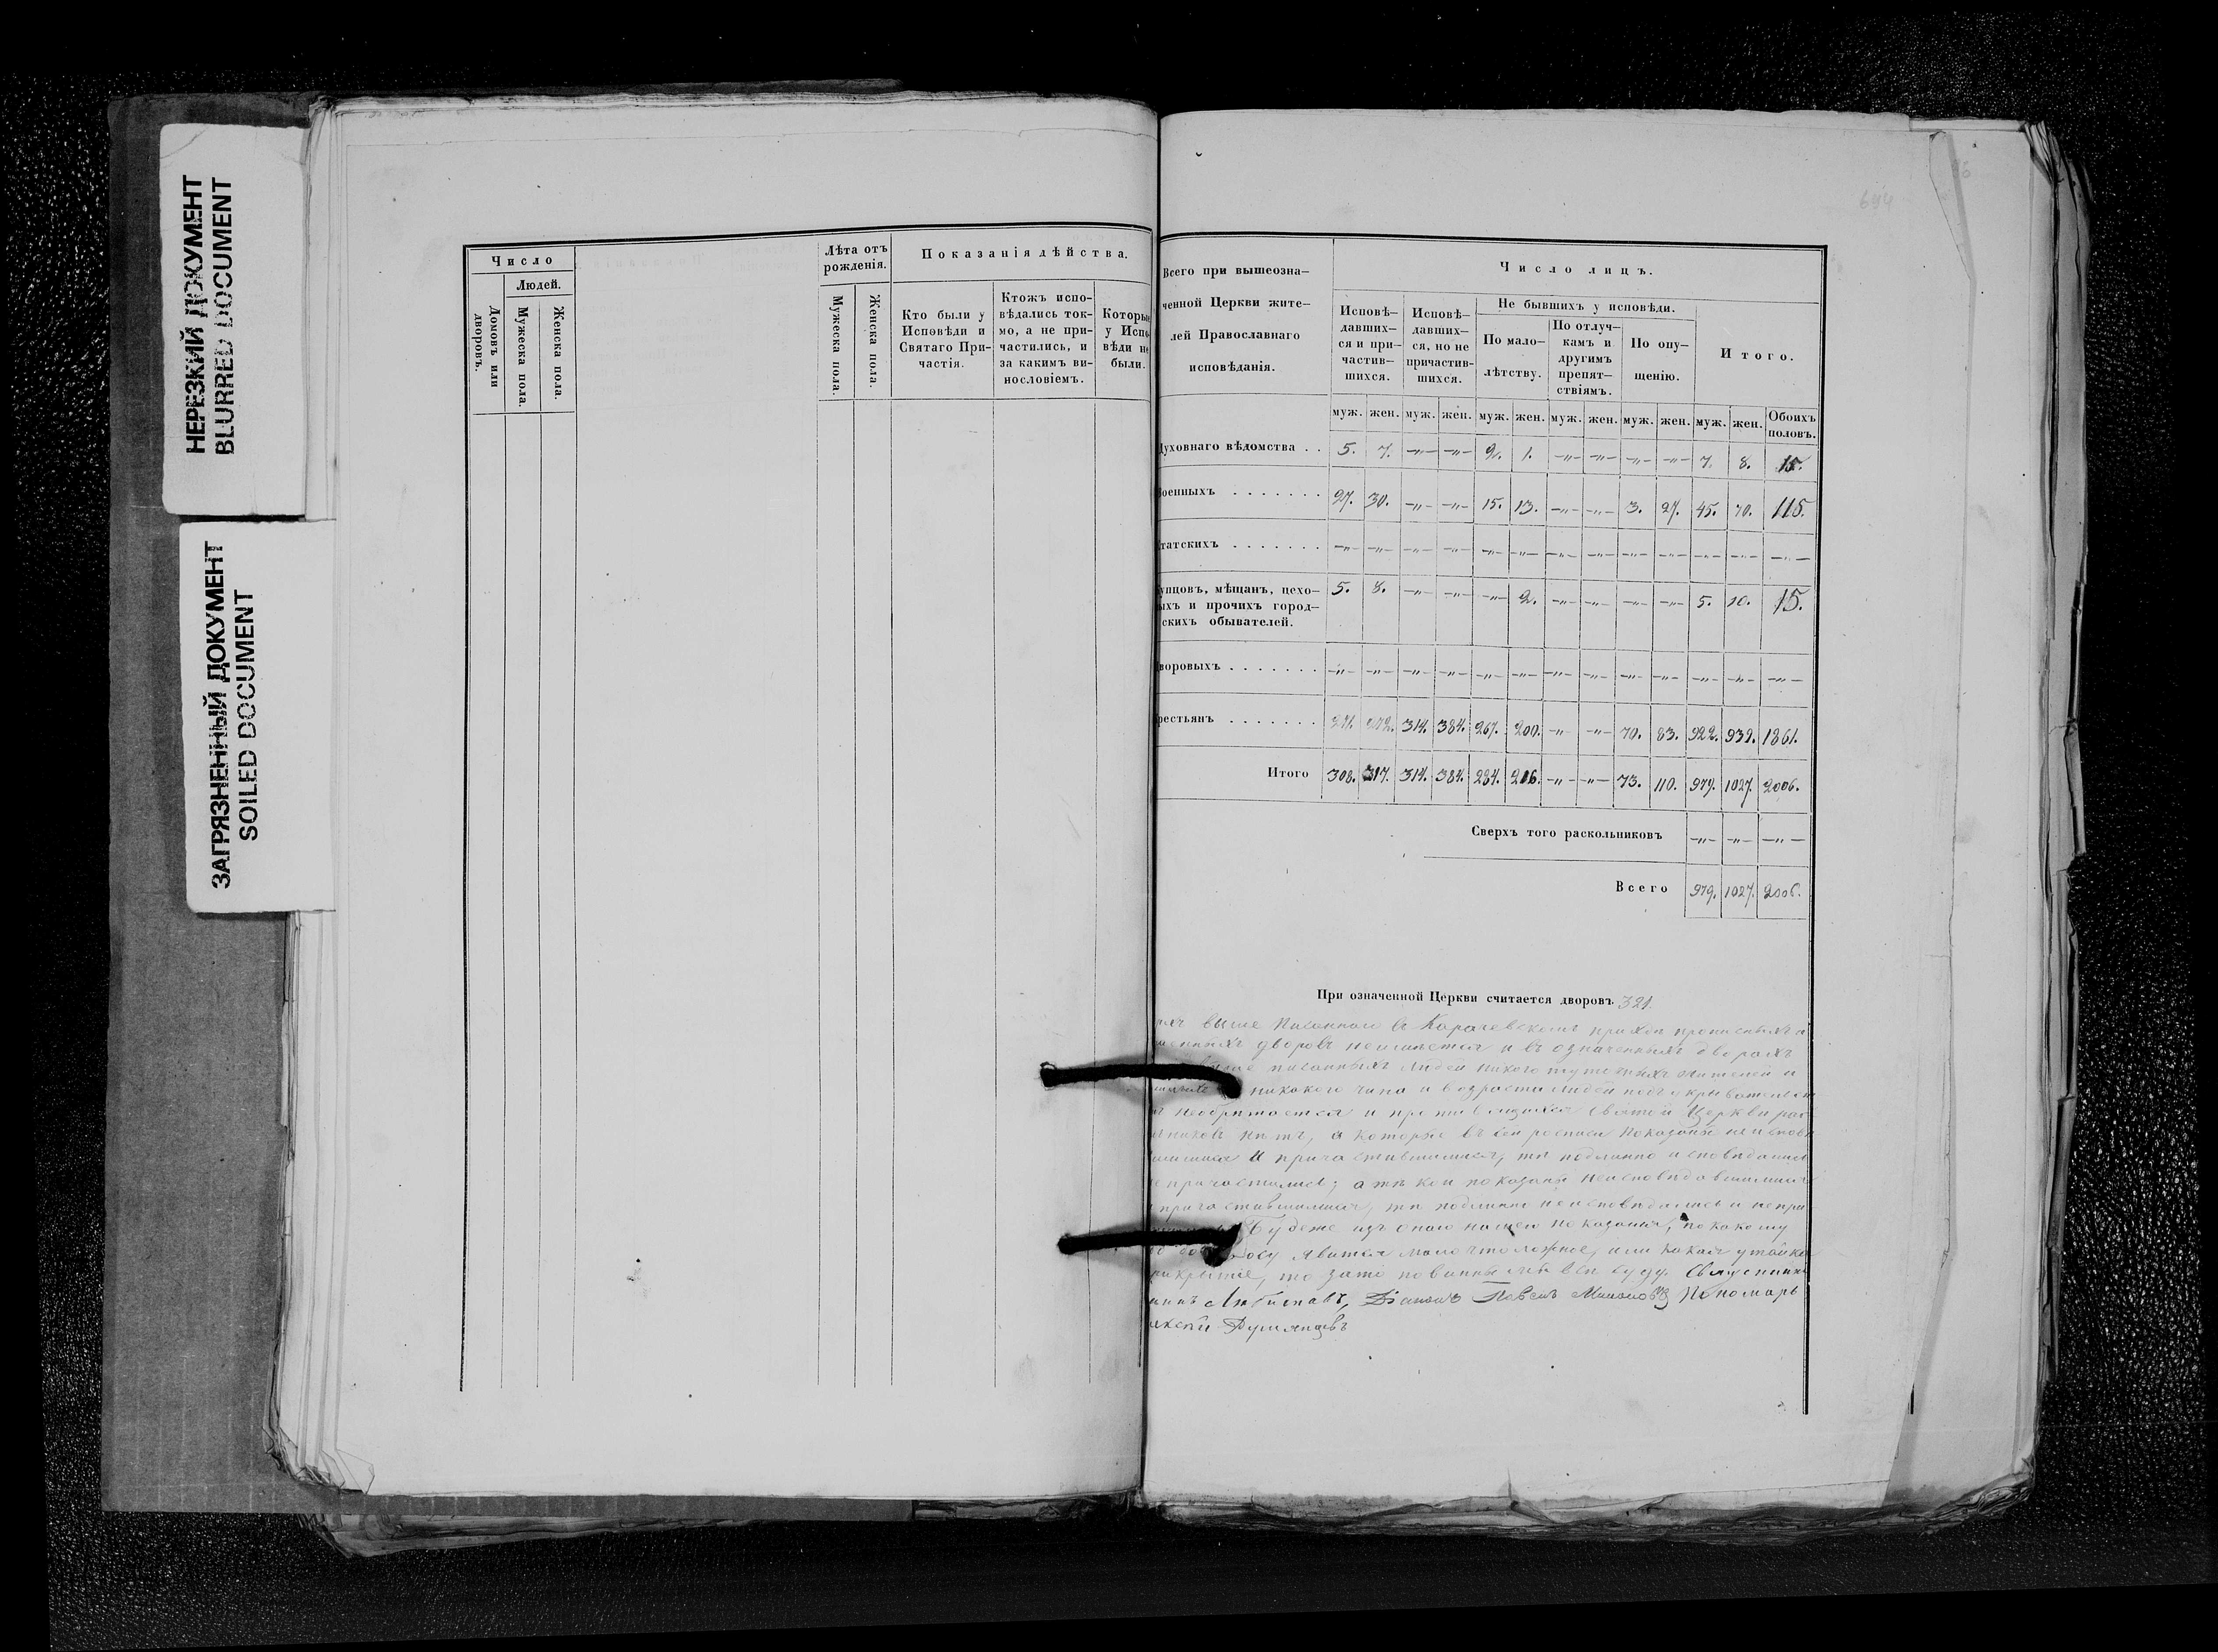 НЕРЕЗКИЙ ДОКУМЕНТ
BLURRED DOCUMENT
ЗАГРЯЗНЕННЫЙ ДОКУМЕНТ
SOILED DOCUMENT
Число
Людей.
Домовъ или дворовъ.
Мужеска пола.
Женска пола.
Лѣта отъ рожденія.
Мужеска пола.
Женска пола.
Показанія дѣйства.
Кто были у
Исповѣди и
Святаго При-
частія.
Ктожъ испо-
вѣдались ток-
мо, а не при-
частились, и
за какимъ ви-
нословіемъ.
Которые
у Испо-
вѣди не
были.
694
Всего при вышеозна-
ченной Церкви жите-
лей Православнаго
исповѣданія.
Число лицъ.
Исповѣ-
давших-
ся и при-
частив-
шихся.
Исповѣ-
давших-
ся, но не
причастив-
шихся.
Не бывшихъ у исповѣди.
По мало-
лѣтству.
По отлуч-
камъ и
другимъ
препят-
ствіямъ.
По опу-
щенію.
Итого.
муж. жен. муж. жен. муж. жен. муж. жен. муж. жен. муж. жен. Обоихъ половъ.
Духовнаго вѣдомства . . 5. 7. —"— —"— 2. 1. —"— —"— —"— —"— 7. 8. 15.
Военныхъ . . . . . . . 27. 30. —"— —"— 15. 13. —"— —"— 3. 27. 45. 70. 115.
татскихъ . . . . . . . —"— —"— —"— —"— —"— —"— —"— —"— —"— —"— —"— —"— —"—
упцовъ, мѣщанъ, цехо-
ыхъ и прочихъ город-
скихъ обывателей. 5. 8. —"— —"— —"— 2. —"— —"— —"— —"— 5. 10. 15.
воровыхъ . . . . . . . —"— —"— —"— —"— —"— —"— —"— —"— —"— —"— —"— —"— —"—
рестьянъ . . . . . . . 271. 272. 314. 384. 267. 200. —"— —"— 70. 83. 922. 939. 1861.
Итого 308. 317. 314. 384. 284. 216. —"— —"— 73. 110. 979. 1027. 2006.
Сверхъ того раскольниковъ —"— —"— —"—
Всего 979. 1027. 2006.
При означенной Церкви считается дворовъ 321.
выше писаннаго в Карачевскомъ приходѣ прописныхъ и
дворовъ неимѣется и въ означенныхъ дворахъ
писанныхъ людей никого тутешныхъ жителей и
никакого чина и возраста людей подъ укрывательст
необрѣтается и противящихся святой Церкви рас
никовъ нѣтъ, а которые въ сей росписи показаны неисповѣ
и причастившимися, тѣ подлинно исповѣдались
причастились; а тѣ кои показаны неисповѣдавшимися
причастившимися, тѣ подлинно неисповѣдались и непри
Будеже изъ онаго нашего показанія, по какому
явится мало что ложное, или какая утайка
крытіе, то зато повинны мы все суду. Священникъ
Діаконъ Павелъ Пономарь
Румянцевъ